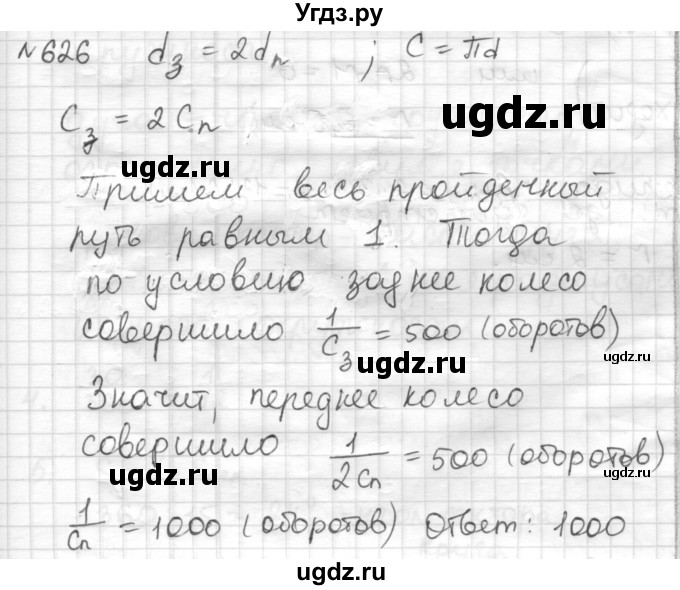 Угдз.ру
№626 dз = 2dп ; C = πd
Cз = 2Cп
ugdz.ru
ugdz.ru
Примем весь пройденный
путь равным 1. Тогда
ugdz.ru
ugdz.ru
по условию заднее колесо
совершило 1/Cз = 500 (оборотов)
ugdz.ru
ugdz.ru
Значит, переднее колесо
совершило 1/2Cп = 500 (оборотов)
ugdz.ru
ugdz.ru
1/Cп = 1000 (оборотов) Ответ: 1000
ugdz.ru
ugdz.ru